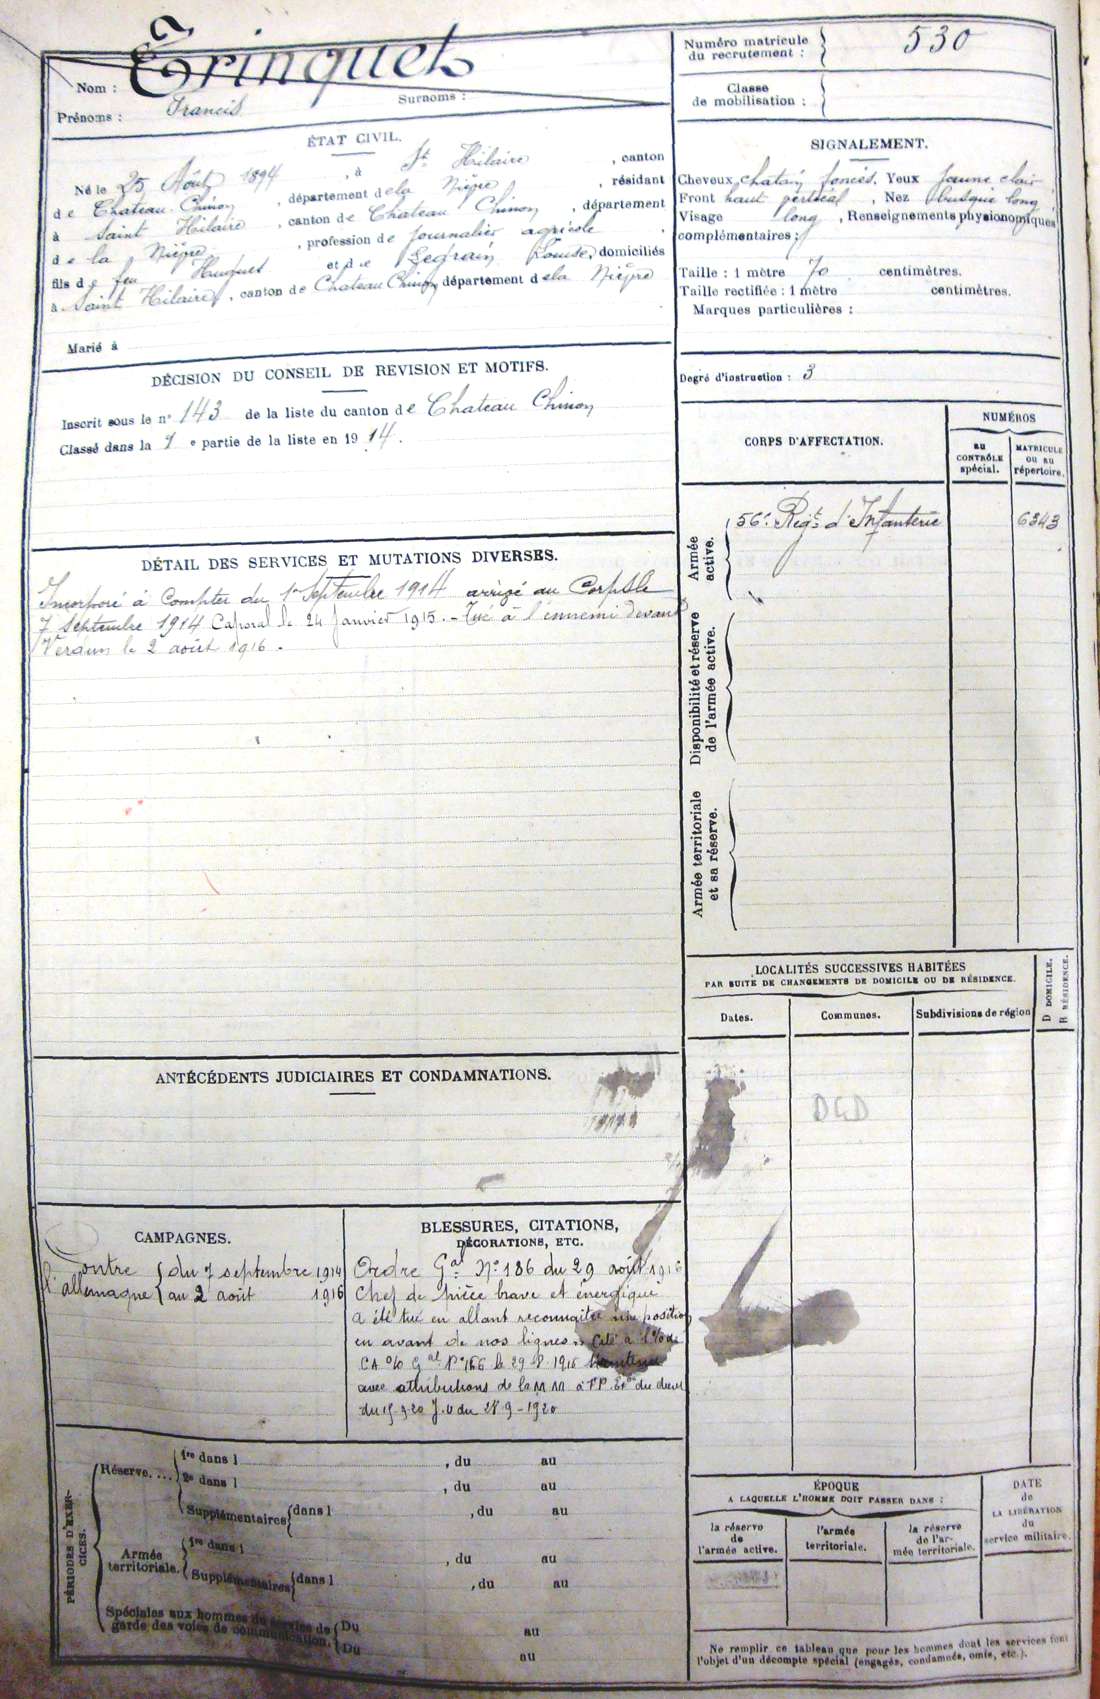 Nom : Trinquet
Surnoms :
Prénoms : Francis
Numéro matricule du recrutement : 530
Classe de mobilisation :
ÉTAT CIVIL.
Né le 25 Août 1894, à St Hilaire, canton
de Chateau Chinon, département de la Nièvre, résidant
à Saint Hilaire, canton de Chateau Chinon, département
de la Nièvre, profession de journalier agricole,
fils de feu Hugues et de Legrain Louise, domiciliés
à Saint Hilaire, canton de Chateau Chinon département de la Nièvre
Marié à
SIGNALEMENT.
Cheveux chatain foncés. Yeux jaune clair
Front haut , Nez busqué long
Visage long, Renseignements physionomiques
complémentaires :
Taille : 1 mètre 70 centimètres.
Taille rectifiée : 1 mètre centimètres.
Marques particulières :
Degré d'instruction : 3
DÉCISION DU CONSEIL DE REVISION ET MOTIFS.
Inscrit sous le n° 143 de la liste du canton de Chateau Chinon
Classé dans la 1e partie de la liste en 1914.
CORPS D'AFFECTATION.
NUMÉROS
au CONTRÔLE spécial.
MATRICULE ou au répertoire.
Armée active.
56e Regt d'Infanterie 6343
Disponibilité et réserve de l'armée active.
Armée territoriale et sa réserve.
DÉTAIL DES SERVICES ET MUTATIONS DIVERSES.
Incorporé à compter du 1er Septembre 1914 arrivé au Corps le
7 septembre 1914 Caporal le 24 Janvier 1915. - Tué à l'ennemi devant
Verdun le 2 août 1916.
LOCALITÉS SUCCESSIVES HABITÉES
PAR SUITE DE CHANGEMENTS DE DOMICILE OU DE RÉSIDENCE.
Dates.
Communes.
Subdivisions de région
D DOMICILE.
R RÉSIDENCE.
DGD
ANTÉCÉDENTS JUDICIAIRES ET CONDAMNATIONS.
CAMPAGNES.
Contre l'allemagne { du 7 septembre 1914
au 2 août 1916
BLESSURES, CITATIONS,
DÉCORATIONS, ETC.
Ordre Gal N° 186 du 29 août 1916
Chef de pièce brave et énergique
a été tué en allant reconnaître une position
en avant de nos lignes. Cité à
CA Gal N° 166 le 29 8 1916
avec attributions de la MM à
du 15-9-20 J.O du 28 9-1920
PÉRIODES D'EXERCICES.
Réserve. ...
1re dans l , du au
2e dans l , du au
Supplémentaires dans l , du au
Armée territoriale.
1re dans l , du au
Supplémentaires dans l , du au
Spéciales aux hommes du service de garde des voies de communication.
Du au
Du au
ÉPOQUE
A LAQUELLE L'HOMME DOIT PASSER DANS :
la réserve de l'armée active.
l'armée territoriale.
la réserve de l'armée territoriale.
DATE de LA LIBÉRATION du service militaire.
Ne remplir ce tableau que pour les hommes dont les services font
l'objet d'un décompte spécial (engagés, condamnés, omis, etc.).